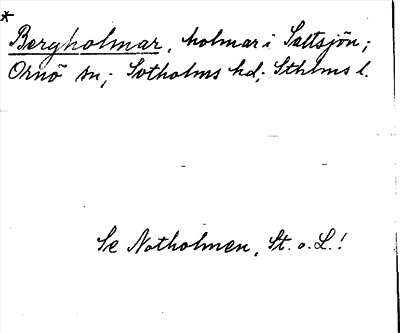 *
Bergholmar, holmar i Saltsjön;
Ornö sn; Sotholms hd; Sthlms l.
Se Notholmen, St. o. L.!